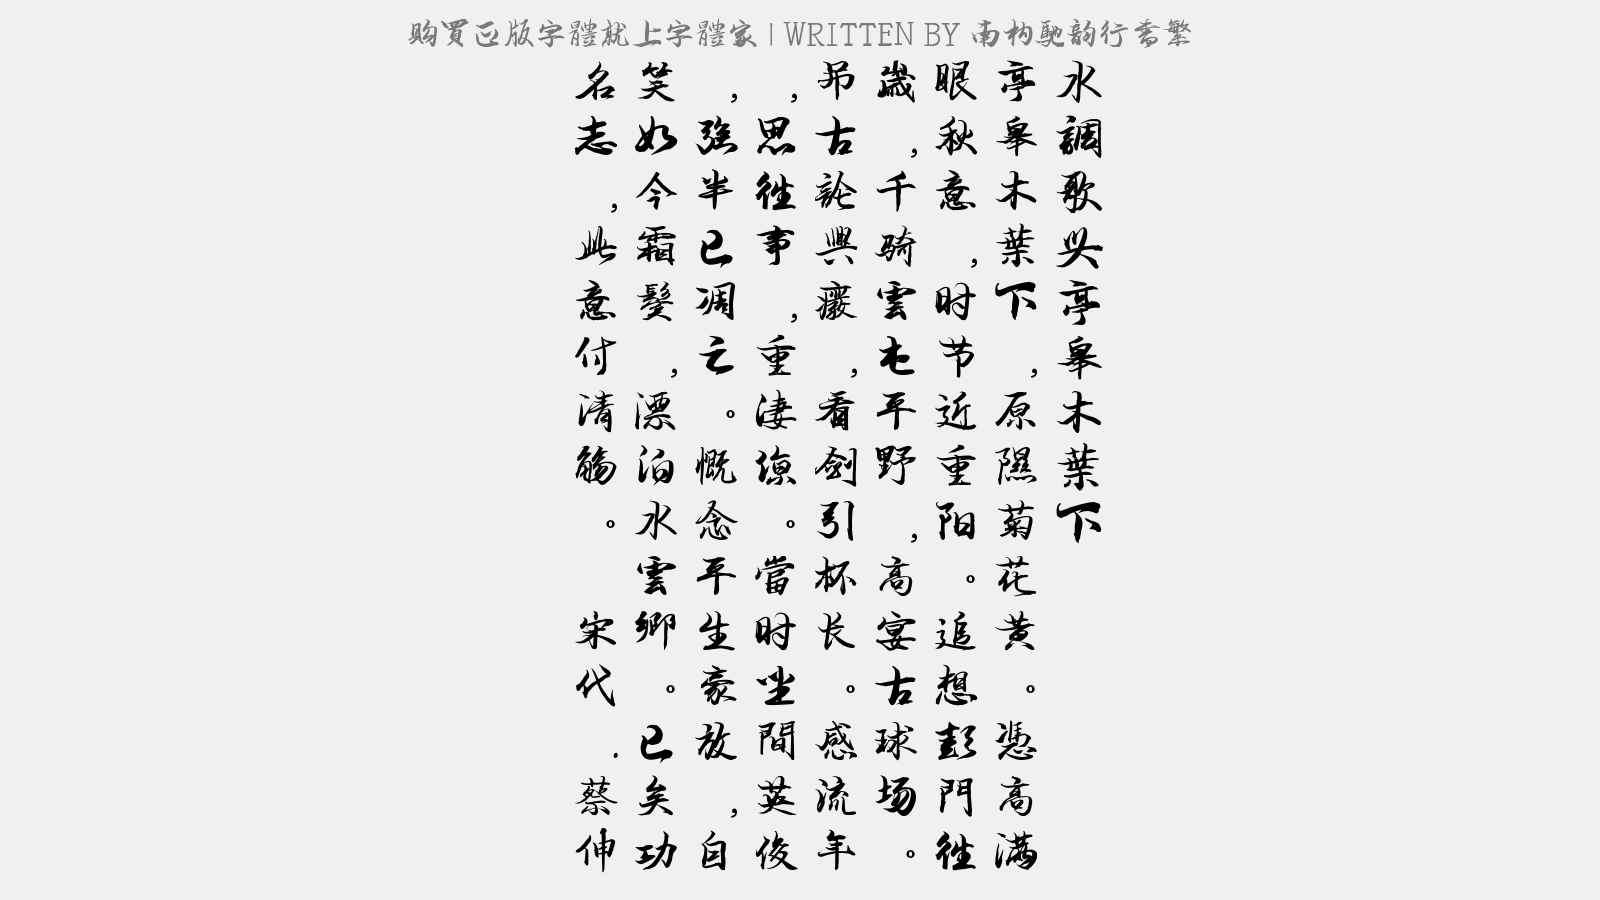 购買正版字體就上字體家 | WRITTEN BY 南构馳韵行書繁
水調歌头亭皋木葉下
亭皋木葉下，原隰菊花黄。憑高满
眼秋意，时节近重阳。追想彭門往
歲，千骑雲屯平野，高宴古球场。
吊古論興癈，看剑引杯长。感流年
，思往事，重淒凉。當时坐間英俊
，强半已凋亡。慨念平生豪放，自
笑如今霜鬓，漂泊水雲鄉。已矣功
名志，此意付清觞。 宋代.蔡伸